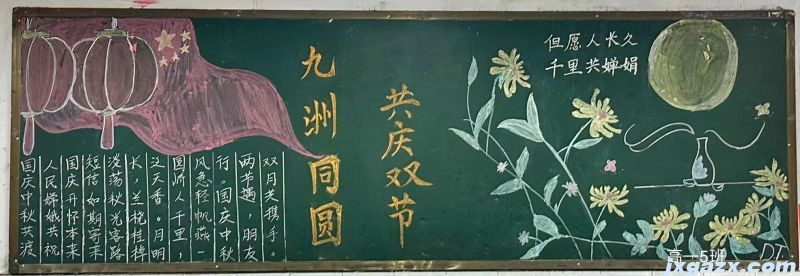 九洲同圆
共庆双节
但愿人长久
千里共婵娟
双月共携手。
两节遇，朋友
行。国庆中秋
风急轻帆燕一
圆 人千里，
泛天香。月明
长，兰桡桂棹
荡秋光客路
短信如期寄来
国庆开怀本来
人民嫦娥共祝
国庆中秋共渡
高一5班
jxgazx.com